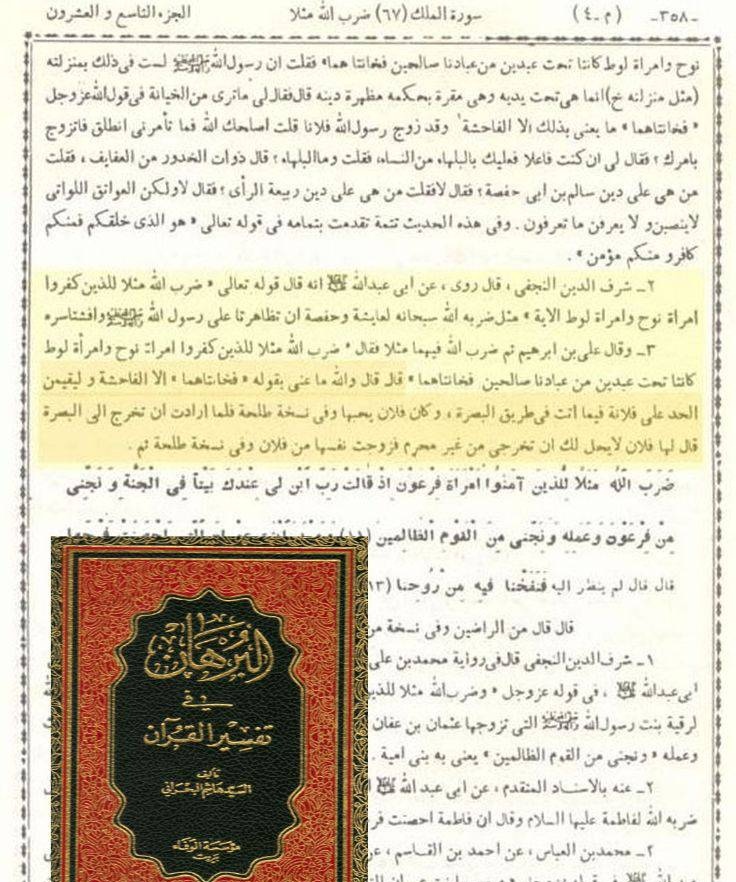 -٣٥٨- (م-٤) سورة الملك (٦٧) ضرب الله مثلا الجزء التاسع و العشرون
نوح وامراة لوط كانتا تحت عبدين من عبادنا صالحين فخانتا هما» فقلت ان رسول الله ليست فى ذلك بمنزلته
(مثل منزلته خ) انما هى تحت يديه وهى مقرة بحكمه مظهرة دينه قال فقال لى ماترى من الخيانة فى قول الله عز وجل
« فخانتاهما » ما يعنى بذلك الا الفاحشة وقد زوج رسول الله فلانا قلت اصلحك الله فما تأمرنى انطلق فاتزوج
بامرك ؟ فقال لى ان كنت فاعلا فعليك بالبلهاء من النساء، فقلت وما البلهاء ؟ قال ذوات الخدور من العفايف ، فقلت
من هى على دين سالم بن ابى حفصة ؟ فقال لا فقلت من هى على دين ربيعة الرأى ؟ فقال لا ولكن العواتق اللواتى
لاينصبن و لا يعرفن ما تعرفون . وفى هذه الحديث تتمة تقدمت بتمامه فى قوله تعالى « هو الذى خلقكم فمنكم
كافر و منكم مؤمن » .
٢ـ شرف الدين النجفى ، قال روى ، عن ابى عبدالله انه قال قوله تعالى « ضرب الله مثلا للذين كفروا
امراة نوح وامراة لوط الاية » مثل ضربه الله سبحانه لعايشة وحفصة ان تظاهرتا على رسول الله وافشتا سره
٣ـ وقال على بن ابرهيم ثم ضرب الله فيهما مثلا فقال « ضرب الله مثلا للذين كفروا امراة نوح وامرأة لوط
كانتا تحت عبدين من عبادنا صالحين فخانتاهما » قال قال والله ما عنى بقوله « فخانتاهما » الا الفاحشة و ليقيمن
الحد على فلانة فيما اتت فى طريق البصرة ، وكان فلان يحبها وفى نسخة طلحة فلما ارادت ان تخرج الى البصرة
قال لها فلان لايحل لك ان تخرجى من غير محرم فزوجت نفسها من فلان وفى نسخة طلحة ثم .
ضَرَبَ اللّه مَثَلاً لِلَّذين آمَنُوا امْرَاةَ فِرْعَون اذْ قالَت رَبِّ ابْن لى عِنْدك بَيْتاً فِى الجَنَّة وَ نَجِّنى
مِنْ فِرْعَوْن وَ عَمَلِه وَ نَجِّنى مِنَ القَوْمِ الظالِمين
قال قال لم ينظر اليه فَنَفَخْنا فيهِ مِنْ رُوحنا
قال قال من الراضين وفى نسخة
١ـ شرف الدين النجفى قال فى رواية محمد بن على
ابى عبدالله ، فى قوله عزوجل « وضرب الله مثلا
لرقية بنت رسول الله التى تزوجها عثمان بن عفان
وعمله « ونجنى من القوم الظالمين » يعنى به بنى امية .
٢ـ عنه بالاسناد المتقدم ، عن ابى عبد الله
ضربه الله لفاطمة عليها السلام وقال ان فاطمة احصنت
٢ـ محمد بن العباس ، عن احمد بن القاسم ،
البرهان
في
تفسير القرآن
تأليف
السيد هاشم البحراني
مؤسسة الوفاء
بيروت